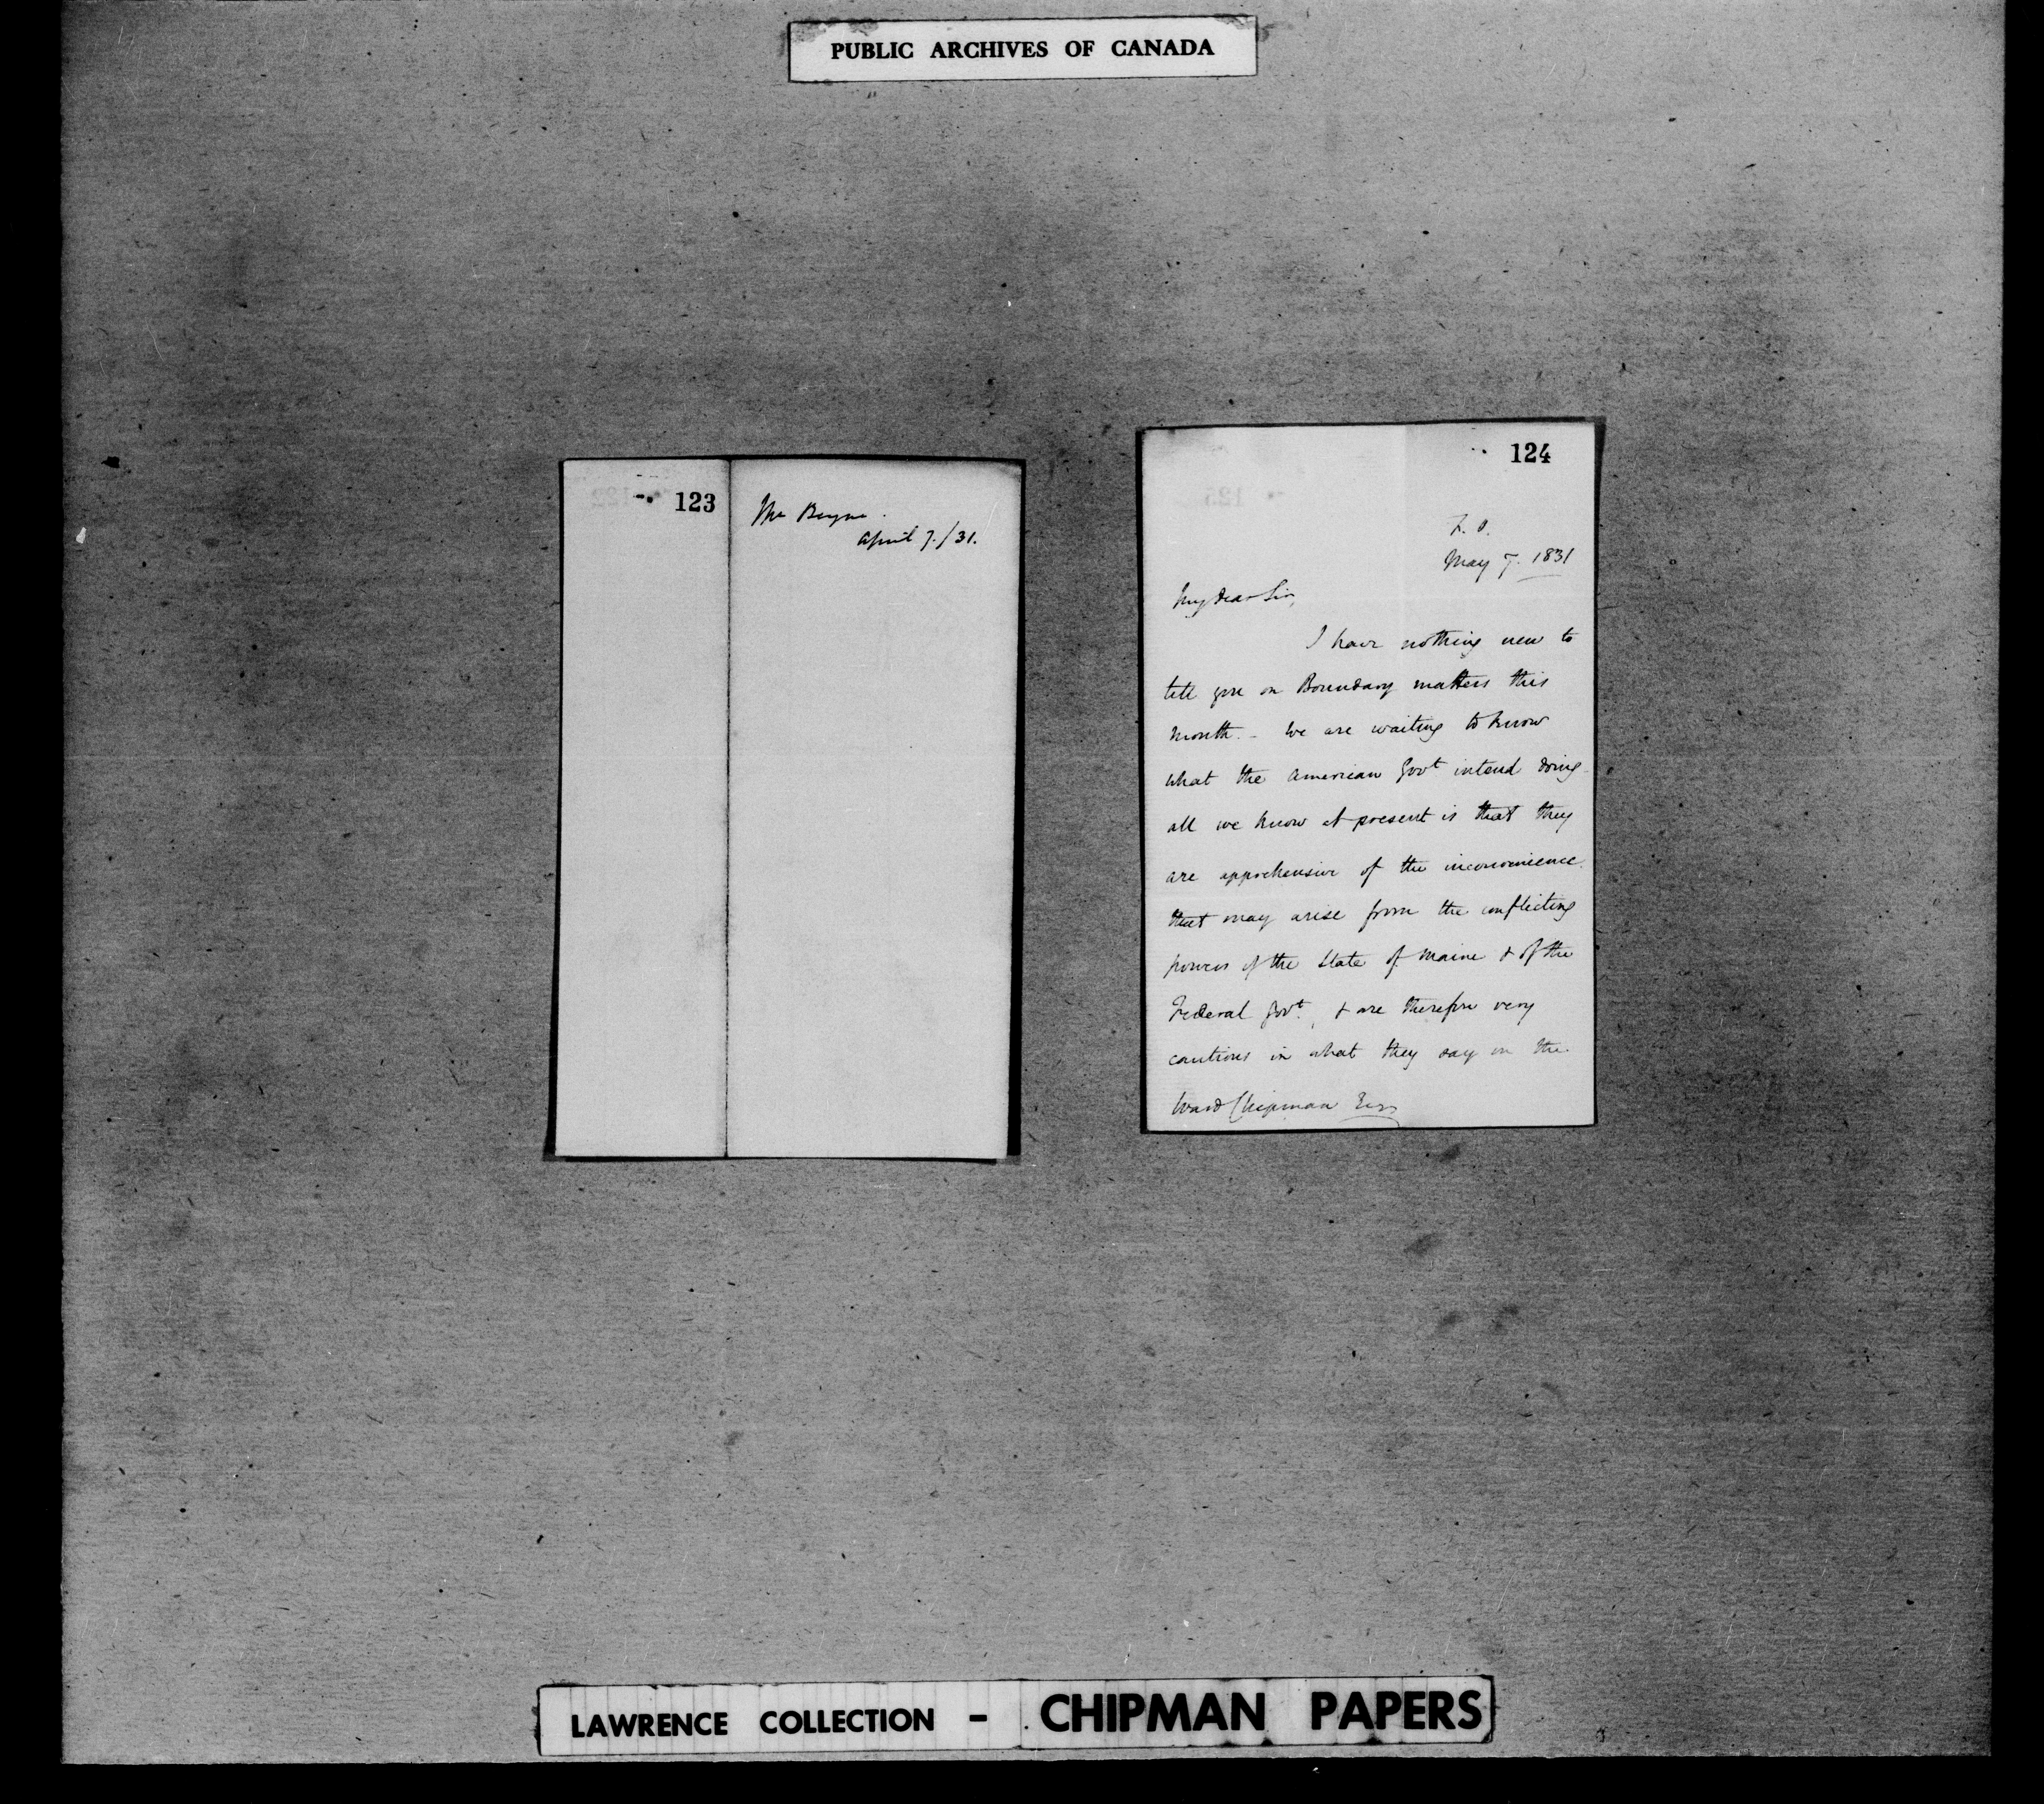 PUBLIC ARCHIVES OF CANADA
123
Mr Bayne
April 7./31.
124
F. O.
May 7. 1831
My dear Sir,
I have nothing new to
tell you on Boundary matters this
month. - We are waiting to know
what the American Govt intend doing
all we know at present is that they
are apprehensive of the inconvenience
that may arise from the conflicting
powers of the State of Maine & of the
Federal Govt., & are therefore very
cautious in what they say on the
Ward Chipman Esqr
LAWRENCE COLLECTION - CHIPMAN PAPERS